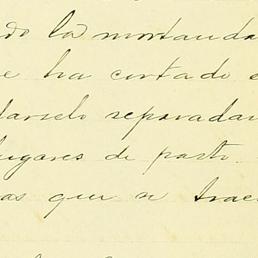 do la mortanda
e ha cortado e
darselo separadam
lugares de pasto
as que se trae